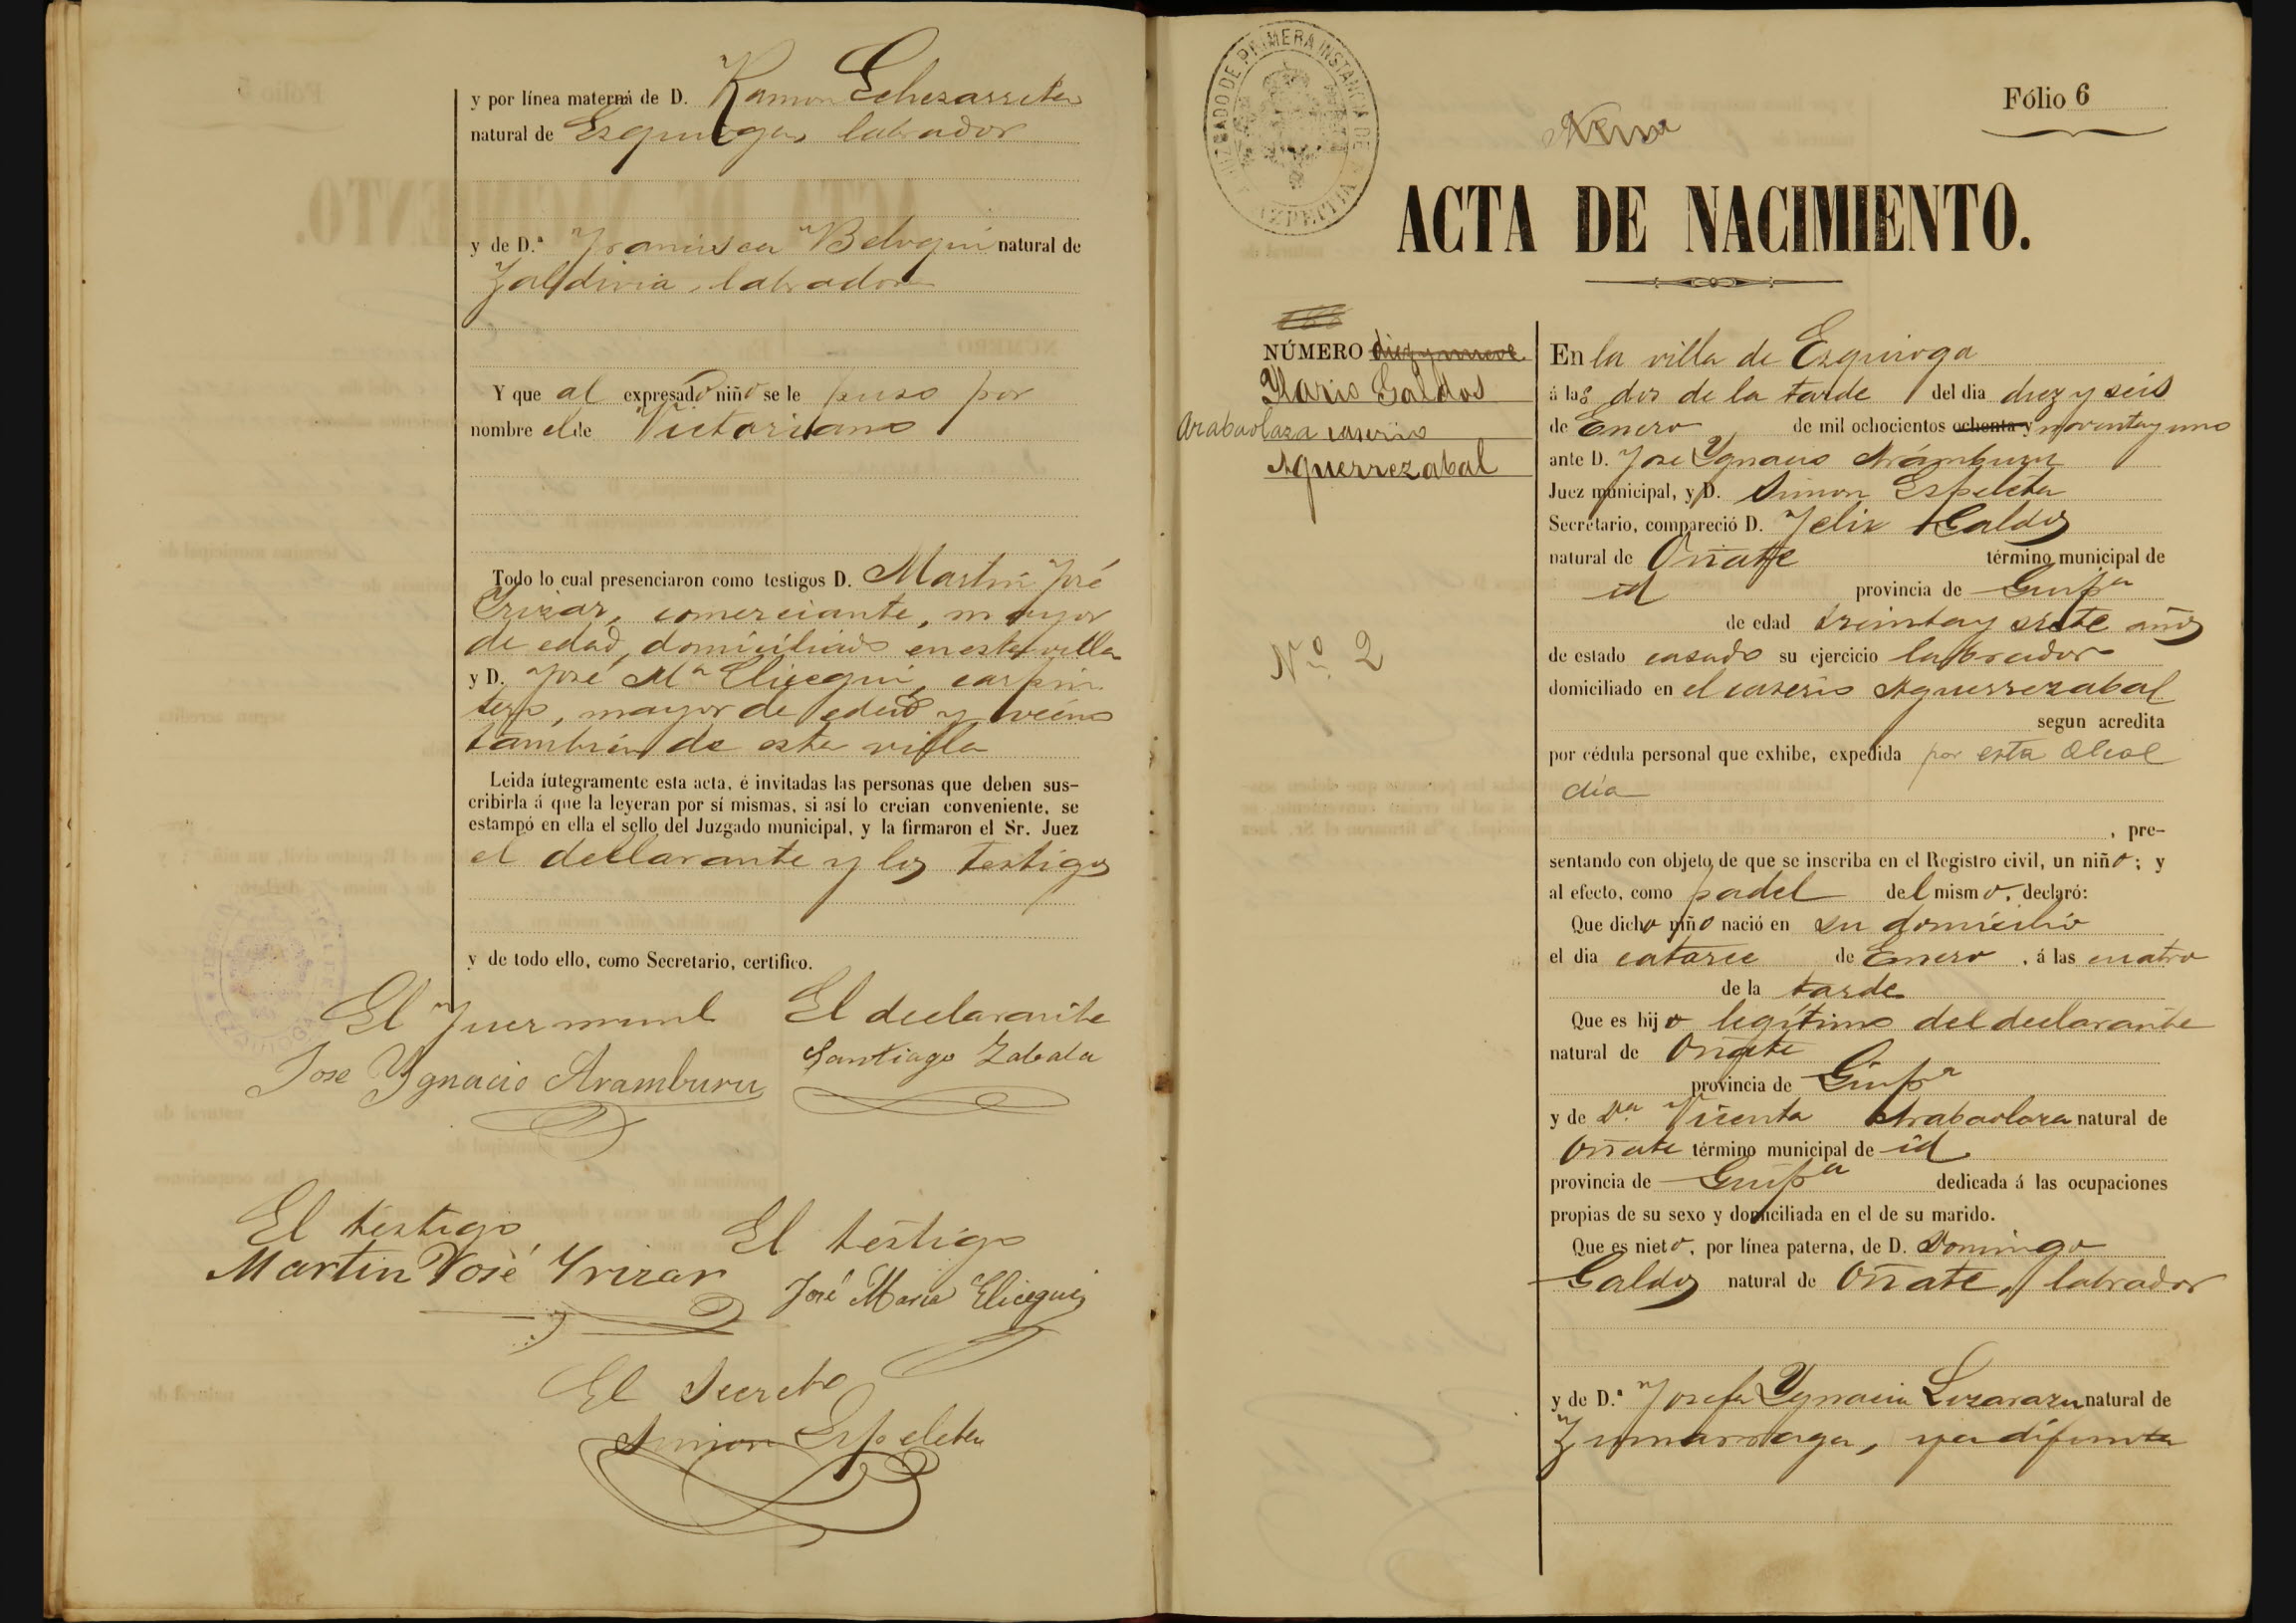 y por línea materna de D. Ramon Echezarreta
natural de Ezquioga, labrador
y de D.ª Francisca Beloqui natural de
Zaldivia, labradora
Y que al expresado niño se le puso por
nombre el de Victoriano
Todo lo cual presenciaron como testigos D. Martin José
Yrizar, comerciante, mayor
de edad, domiciliado en esta villa
y D. José Mª Elicegui, carpin
tero, mayor de edad y vecino
tambien de esta villa
Leida íutegramente esta acta, é invitadas las personas que deben sus-
cribirla á que la leyeran por sí mismas, si así lo creian conveniente, se
estampó en ella el sello del Juzgado municipal, y la firmaron el Sr. Juez
el declarante y los testigos
y de todo ello, como Secretario, certifico.
El Juez munl El declarante
Jose Ygnacio Aramburu Santiago Zabala
El testigo El testigo
Martin José Yrizar José Maria Elicegui
El Secreto
Simon Espeleta
JUZGADO DE PRIMERA INSTANCIA DE AZPEITIA
Fólio 6
ACTA DE NACIMIENTO.
NÚMERO diez y nueve
Ylario Galdos
Arabaolaza caserio
Aguerrezabal
Nº 2
En la villa de Ezquioga
á las dos de la tarde del dia diez y seis
de Enero de mil ochocientos ochenta y noventa y uno
ante D. Jose Ygnacio Arámburu
Juez municipal, y D. Simon Espeleta
Secretario, compareció D. Felix Galdos
natural de Oñate término municipal de
id provincia de Guipª
de edad treinta y siete años
de estado casado su ejercicio labrador
domiciliado en el caserio Aguerrezabal
segun acredita
por cédula personal que exhibe, expedida por esta Alcal
día
, pre-
sentando con objeto de que se inscriba en el Registro civil, un niño; y
al efecto, como padel del mismo, declaró:
Que dicho niño nació en su domicilio
el dia catorce de Enero, á las cuatro
de la tarde
Que es hijo legítimo del declarante
natural de Oñate
provincia de Guipª
y de Dª Vicenta Arabaolaza natural de
Oñate término municipal de id
provincia de Guipª dedicada á las ocupaciones
propias de su sexo y domiciliada en el de su marido.
Que es nieto, por línea paterna, de D. Domingo
Galdos natural de Oñate, labrador
y de D.ª Josefa Ygnacia Lizarazu natural de
Zumarraga, ya difunta